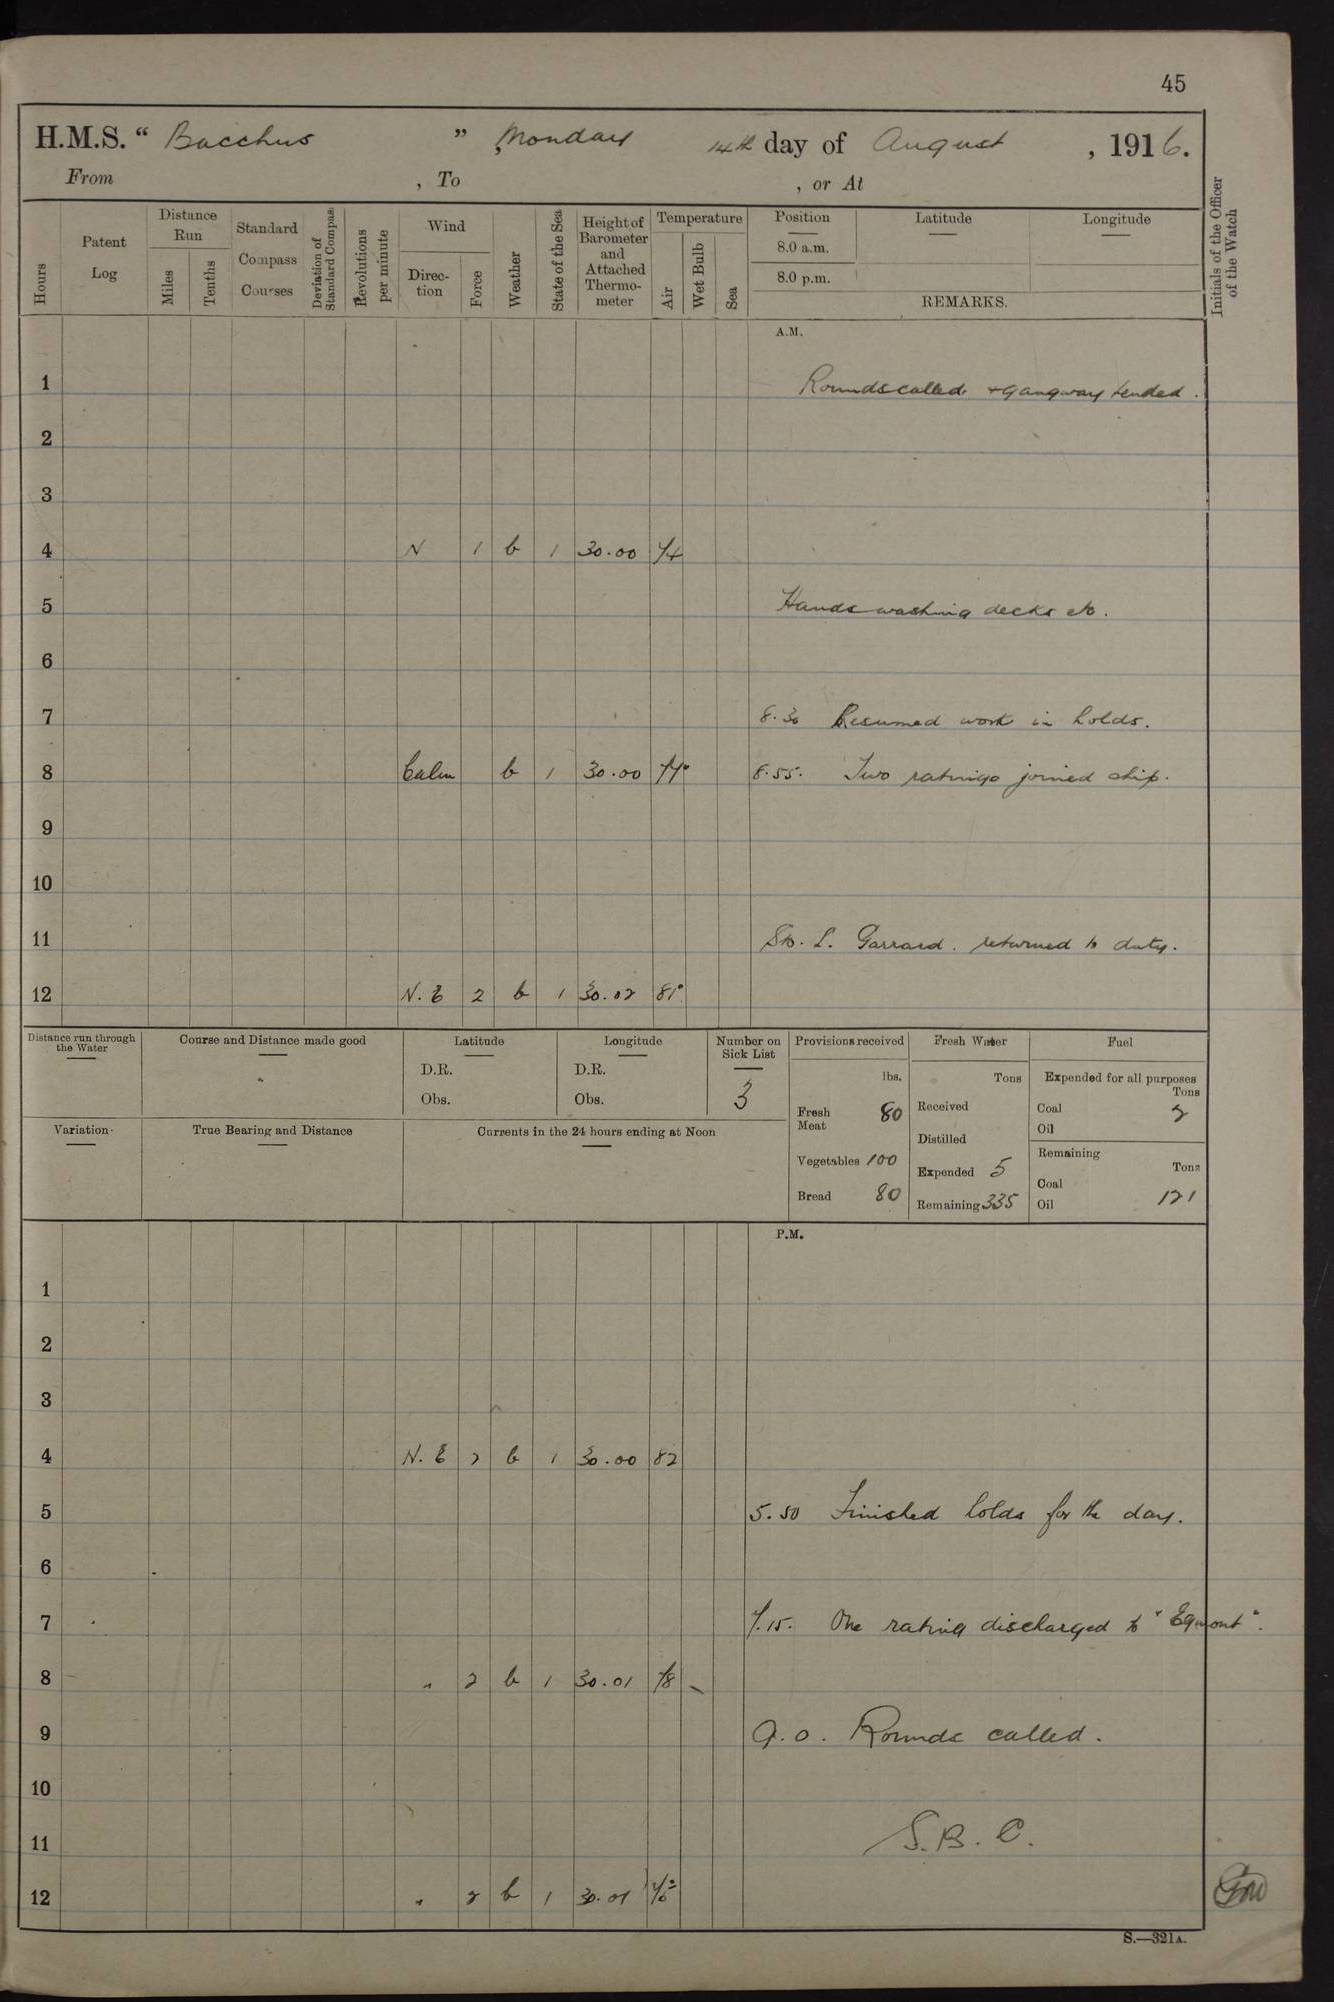 45
H.M.S. “ Bacchus ” , Monday 14th day of August , 1916.
From , To , or At
Hours
Patent Log
Distance Run
Miles
Tenths
Standard Compass Courses
Deviation of Standard Compass
Revolutions per minute
Wind
Direc-tion
Force
Weather
State of the Sea
Height of Barometer and Attached Thermo-meter
Temperature
Air
Wet Bulb
Sea
Position
8.0 a.m.
8.0 p.m.
Latitude
Longitude
REMARKS.
Initials of the Officer of the Watch
A.M.
1 Rounds called & gangway tended.
2
3
4 N 1 b 1 30.00 74
5 Hands washing decks etc.
6
7 8.30 Resumed work in holds.
8 Calm b 1 30.00 8.55. Two ratings joined ship.
9
10
11 Sto. L. Garrard. returned to duty.
12 N.E 2 b 1 30.02 81°
Distance run through the Water
Course and Distance made good
Latitude
D.R.
Obs.
Longitude
D.R.
Obs.
Number on Sick List
3
Variation
True Bearing and Distance
Currents in the 24 hours ending at Noon
Provisions received
lbs.
Fresh Meat 80
Vegetables 100
Bread 80
Fresh Water
Tons
Received
Distilled
Expended 5
Remaining 335
Fuel
Expended for all purposes
Tons
Coal 2
Oil
Remaining
Tons
Coal
Oil 121
P.M.
1
2
3
4 N.E 2 b 1 30.00 82
5 5.50 Finished holds for the day.
6
7 7.15. One rating discharged to "Egmont".
8 " 2 b 1 30.01 78
9 9.0. Rounds called.
10
11 S.B.C.
12 " 2 b 1 30.01
S.—321A.